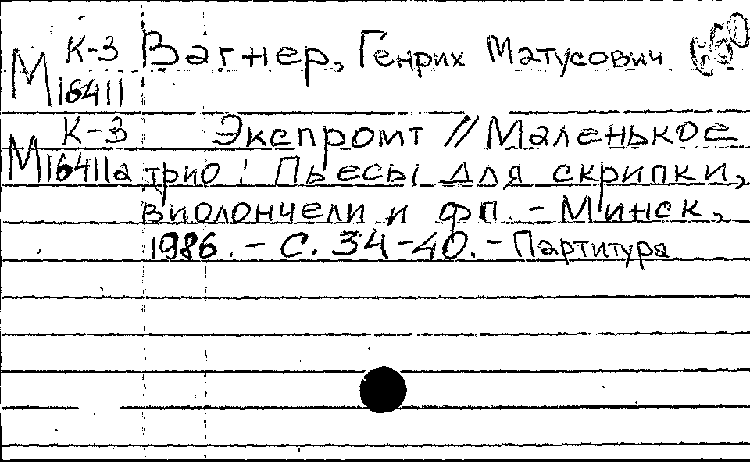 К-3 Вагнер, Генрих Матусович
М16411
К-3 Экспромт // Маленькое
М16411а трио: Пьесы для скрипки,
виолончели и фп. - Минск,
1986. - С. 34-40. - Партитура